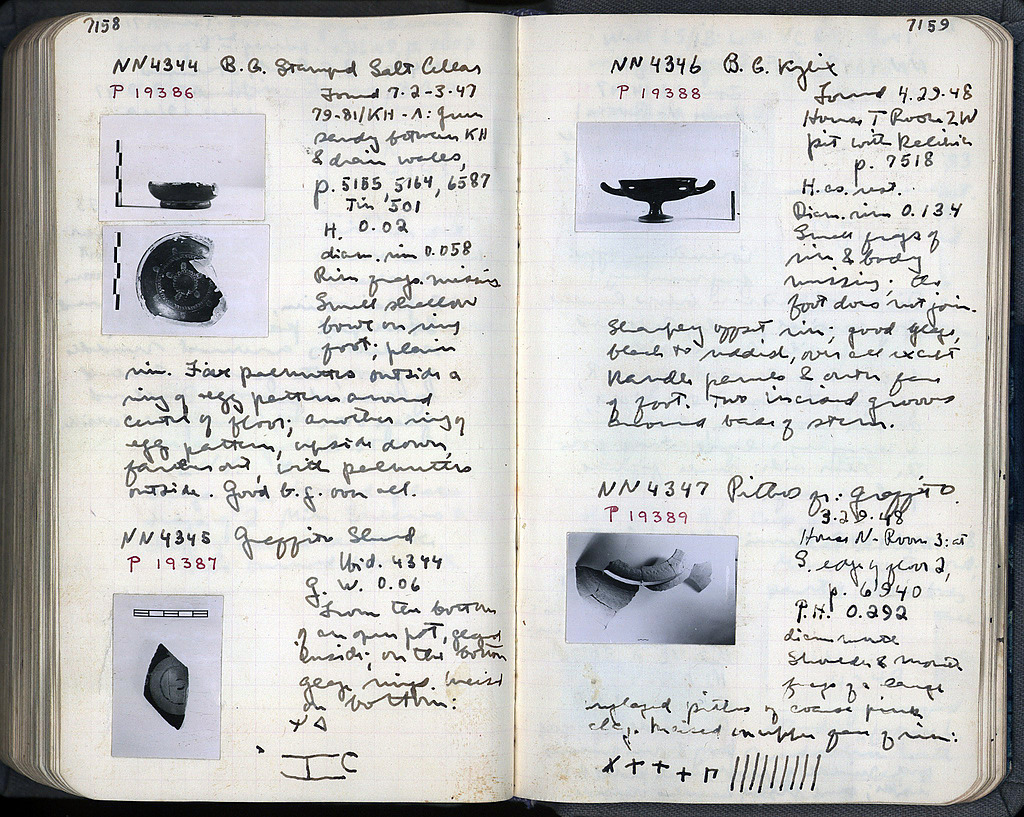 7158
NN4344 B.G. Stamped Salt Cellar
P 19386
Found 7.2-3-47
79-81/KH - Λ: from
sandy between KH
& drain walls,
p. 5155, 5164, 6587
Tin '501
H. 0.02
diam. rim 0.058
Rim frags. missing
Small shallow
bowl on ring
foot; plain
rim. Five palmettes outside a
ring of egg pattern around
center of floor; another ring of
egg pattern, upside down,
farther out, with palmettes
outside. Good b.g. over all.
NN4345 Graffito Sherd
P 19387
Ibid. 4344
G. W. 0.06
From the bottom
of an open pot, glazed
inside; on the bottom
glaze rings. Incised
on bottom:
7159
NN4346 B.G. Kylix
P 19388
Found 4.29.48
House T Room 2W
pit with
p. 7518
H. as rest.
Diam. rim 0.134
Small frags of
rim & body
missing. The
foot does not join.
Sharply offset rim; good glaze,
black to reddish, over all except
handle panels & outer face
of foot. Two incised grooves
around base of stem.
NN4347 Pithos fr.: graffito
P 19389
3.29.48
House N - Room 3: at
S. edge of floor 2,
p. 6940
P.H. 0.292
diam mouth
Shoulder & mouth
frags of a large
unglazed pithos of coarse pink
clay. Incised on upper face of rim: